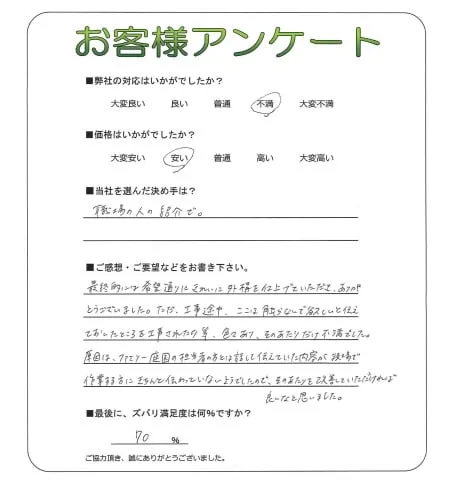 お客様アンケート
■弊社の対応はいかがでしたか？
大変良い 良い 普通 不満 大変不満
■価格はいかがでしたか？
大変安い 安い 普通 高い 大変高い
■当社を選んだ決め手は？
職場の人の紹介で。
■ご感想・ご要望などをお書き下さい。
最終的には希望通りにきれいに外構を仕上げていただき、ありが
とうございました。ただ、工事途中、ここは触らないで欲しいと伝え
ておいたところを工事されたり等、色々あり、そのあたりだけ不満でした。
原因は、ファミリー庭園の担当者の方とは話して伝えていた内容が現場で
作業する方にきちんと伝わっていないようでしたので、そのあたりを改善していただければ
良いなと思いました。
■最後に、ズバリ満足度は何％ですか？
70 ％
ご協力頂き、誠にありがとうございました。